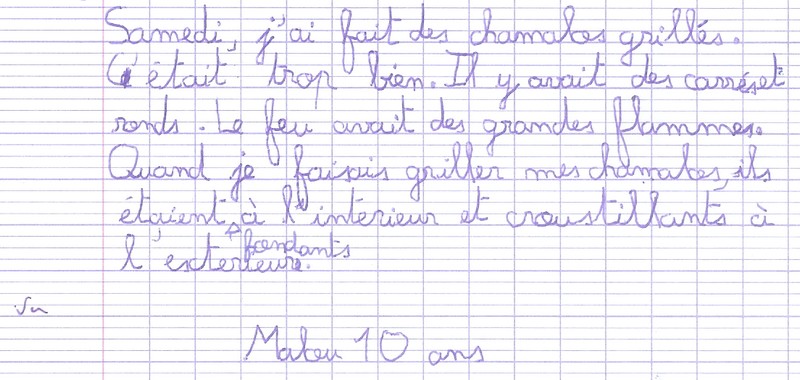 Samedi, j'ai fait des chamalos grillés.
C'était trop bien. Il y avait des carrés et
ronds. Le feu avait des grandes flammes.
Quand je faisais griller mes chamalos, ils
étaient à l'interieur et croustillants à
fondants
l'exterieur.
Mateu 10 ans